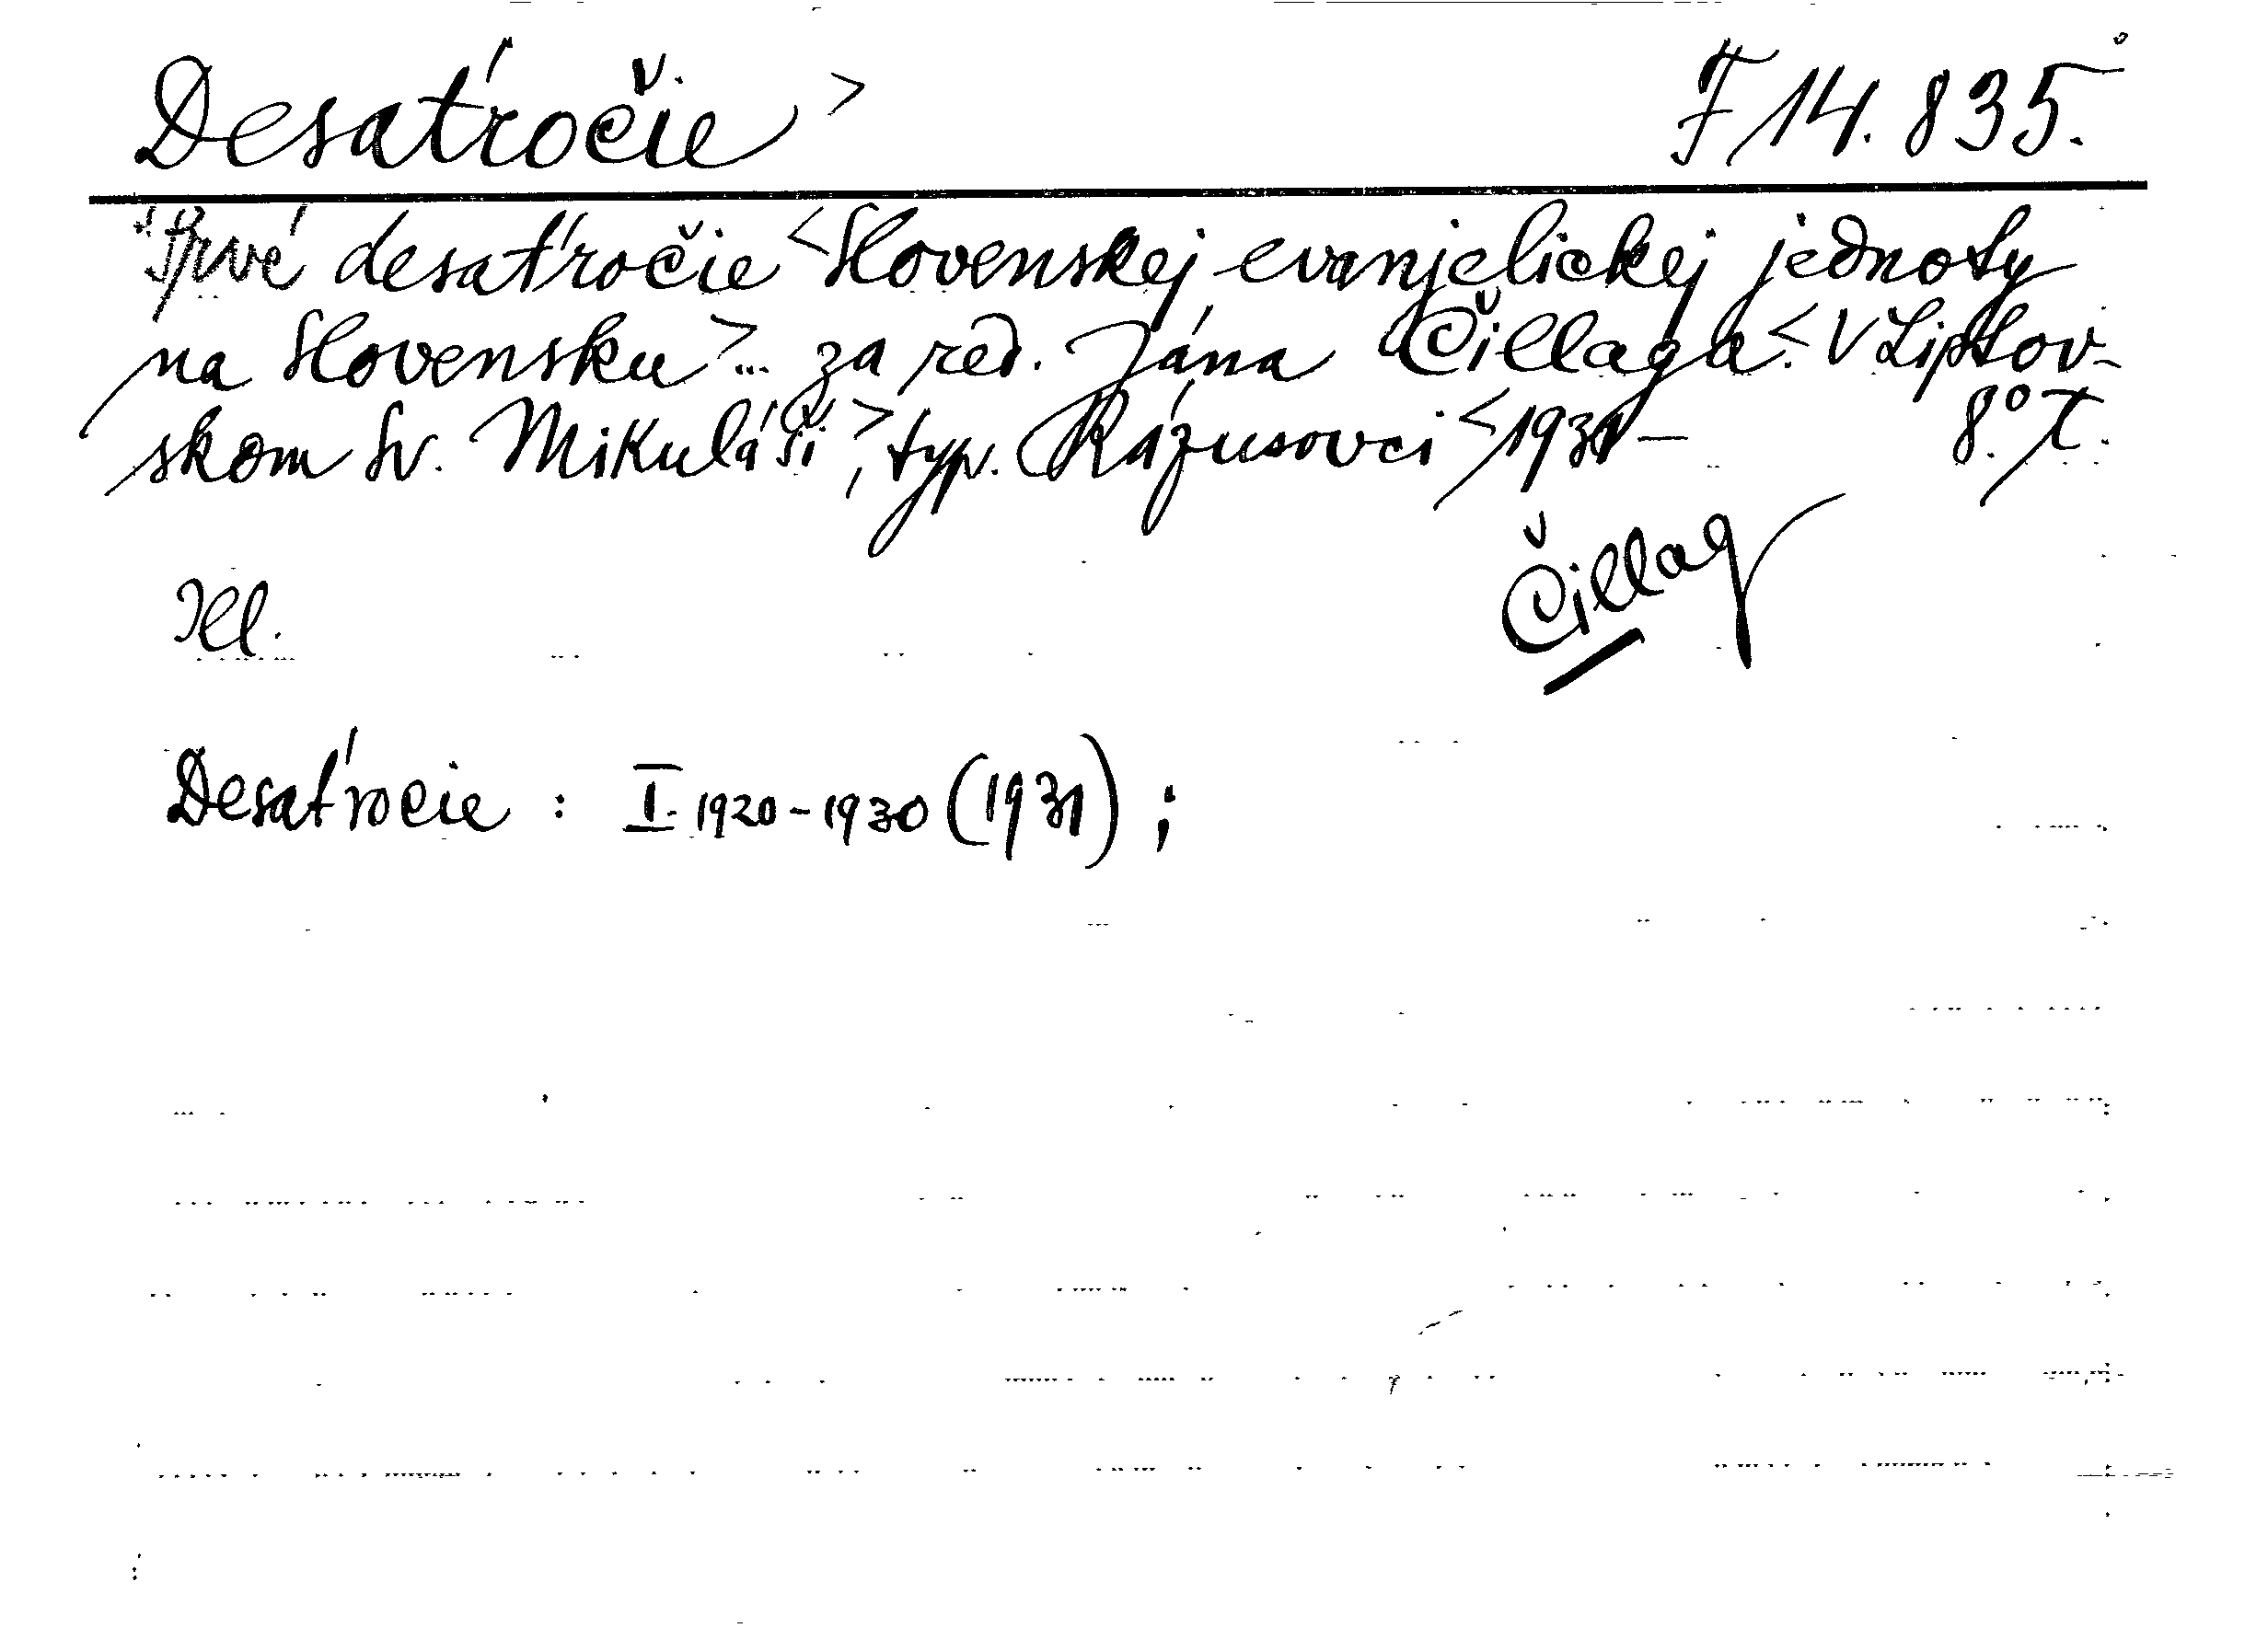 Desaťročie > F 14.835.
Prvé desaťročie < Slovenskej evanjelickej jednoty
na Slovensku > ... za red. Jána Čillaga < . V Liptov-
skom Sv. Mikuláši >, typ. Rázusovci < 1931 — 8.° T.
Ill.
Čillag
Desaťročie : I. 1920-1930 (1931) ;